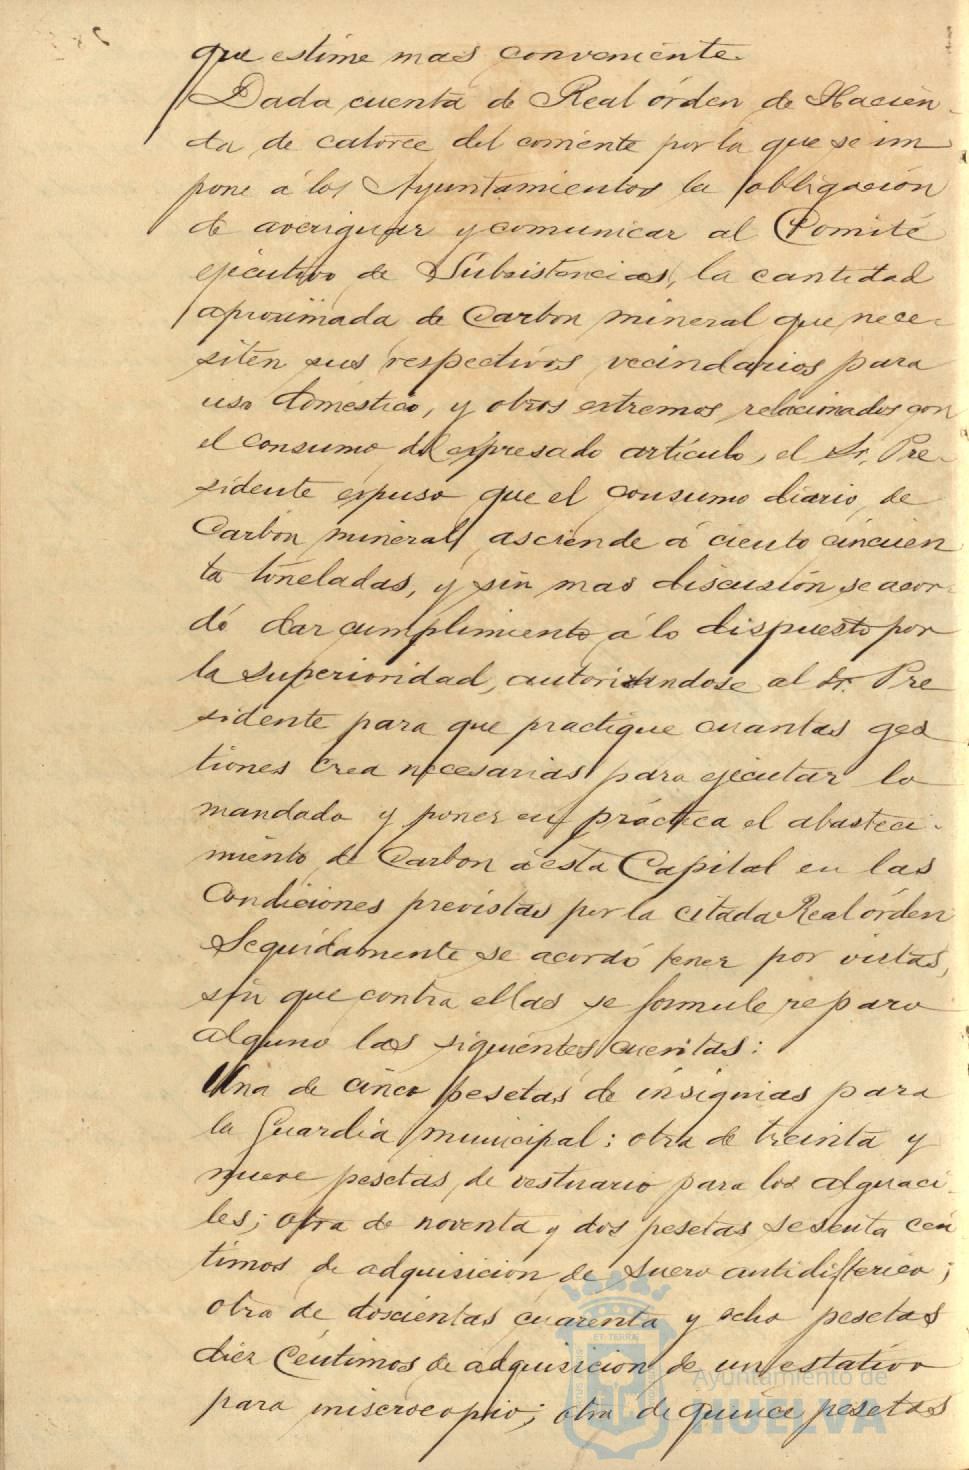 que estime mas conveniente.
Dada cuenta de Real órden de Hacien-
da de catorce del corriente por la que se im
pone á los Ayuntamientos la obligación
de averiguar y comunicar al Comité
ejecutivo de Subsistencias, la cantidad
aproximada de Carbon mineral que nece-
siten sus respectivos vecindarios para
uso doméstico, y otros extremos relacionados con
el consumo del expresado artículo, el Sr. Pre-
sidente expuso que el consumo diario de
Carbón mineral asciende á ciento cincuen
ta toneladas, y sin mas discusión se acor-
dó dar cumplimiento á lo dispuesto por
la superioridad, autorizandose al Sr. Pre
sidente para que practique cuantas ges
tiones crea necesarias para ejecutar lo
mandado y poner en práctica el abasteci-
miento de Carbon á esta Capital en las
Condiciones previstas por la citada Real órden
Seguidamente se acordó tener por vistas,
sin que contra ellas se formule reparo
alguno las siguientes cuentas:
Una de cinco pesetas de insignias para
la Guardia municipal: otra de treinta y
nueve pesetas de vestuario para los alguaci-
les; otra de noventa y dos pesetas sesenta cén
timos de adquisicion de suero antidiftérico;
otra de doscientas cuarenta y ocho pesetas
diez Céntimos de adquisicion de un estativo
para miscrocopio; otra de quince pesetas
ET TERRAE
Ayuntamiento de
HUELVA